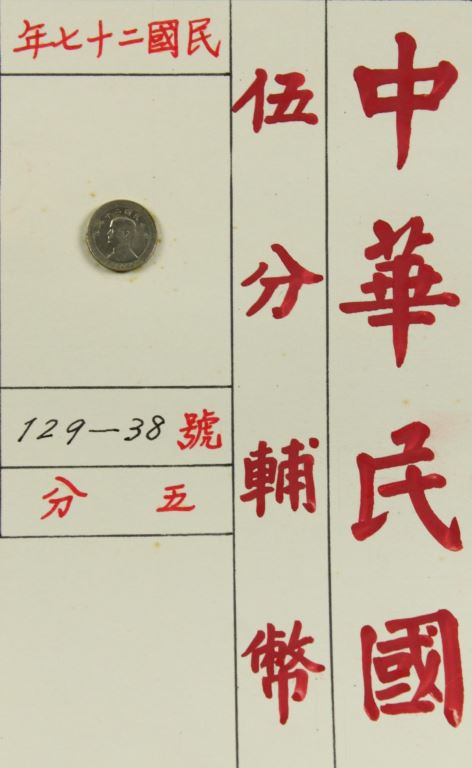 中華民國
伍分輔幣
年七十二國民
129－38號
分 五